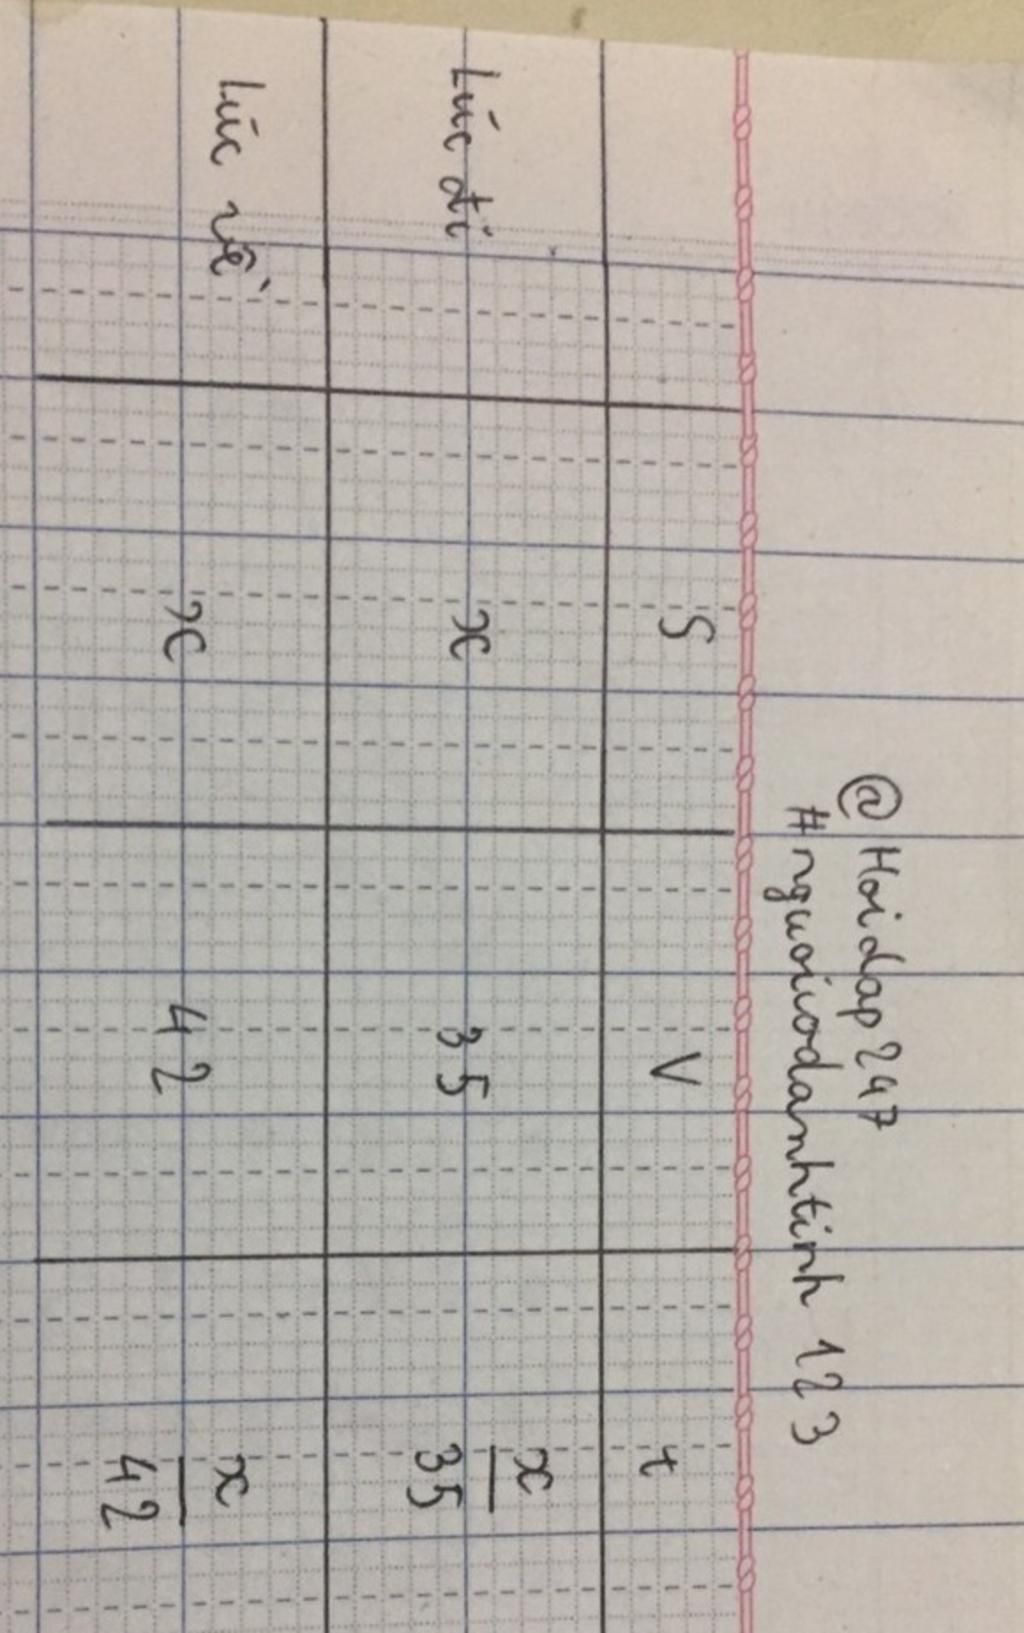 @Hoidap247
#nguoivodanhtinh 123
S V t
Lúc đi x 35 x/35
Lúc về x 42 x/42